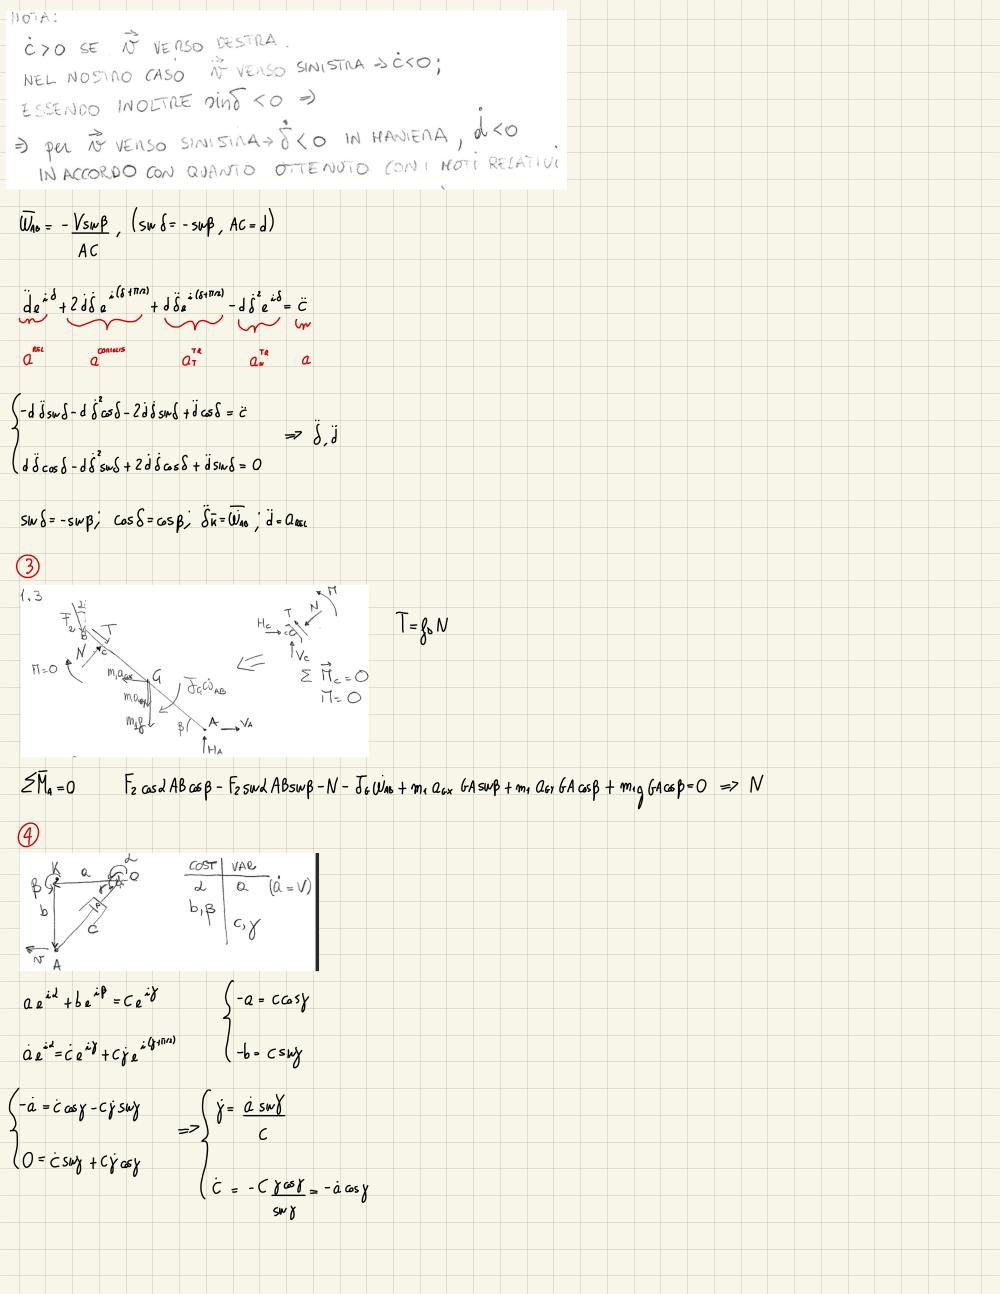 NOTA:
ċ>0 SE v⃗ VERSO DESTRA.
NEL NOSTRO CASO v⃗ VERSO SINISTRA → ċ<0;
ESSENDO INOLTRE sinδ <0 ⇒
⇒ per v⃗ VERSO SINISTRA → δ̇<0 IN MANIERA, ḋ<0
IN ACCORDO CON QUANTO OTTENUTO CON I MOTI RELATIVI
ω̄_AB = - Vsinβ / AC , (sinδ = -sinβ, AC = d)
d̈e^{iδ} + 2ḋδ̇e^{i(δ+π/2)} + dδ̈e^{i(δ+π/2)} - dδ̇²e^{iδ} = c̈
a^{REL} a^{CORIOLIS} a_T^{TR} a_N^{TR} a
-dδ̈sinδ - dδ̇²cosδ - 2ḋδ̇sinδ + d̈cosδ = c̈
⇒ δ̈, d̈
dδ̈cosδ - dδ̇²sinδ + 2ḋδ̇cosδ + d̈sinδ = 0
sinδ = -sinβ; cosδ = cosβ; δ̈k̄ = ω̄̇_AB; d̈ = a_REL
3
1.3
F₂ α B T N C M=0
m₁a_GX G m₁a_GY J_Gω̇_AB m₁g
β A V_A H_A
M T N H_C C V_C
Σ M⃗_C = 0
M = 0
T = f_D N
ΣM̄_A = 0 F₂ cosα AB cosβ - F₂ sinα AB sinβ - N - J_G ω̇_AB + m₁ a_GX GA sinβ + m₁ a_GY GA cosβ + m₁g GA cosβ = 0 ⇒ N
4
K a α O
β γ
b c
v A
COST VAR
α a (ȧ = V)
b, β
c, γ
ae^{iα} + be^{iβ} = ce^{iγ}
-a = c cosγ
ȧe^{iα} = ċe^{iγ} + cγ̇e^{i(γ+π/2)}
-b = c sinγ
-ȧ = ċcosγ - cγ̇sinγ ⇒ γ̇ = ȧ sinγ / c
0 = ċsinγ + cγ̇cosγ
ċ = -c γ̇cosγ / sinγ = -ȧ cosγ